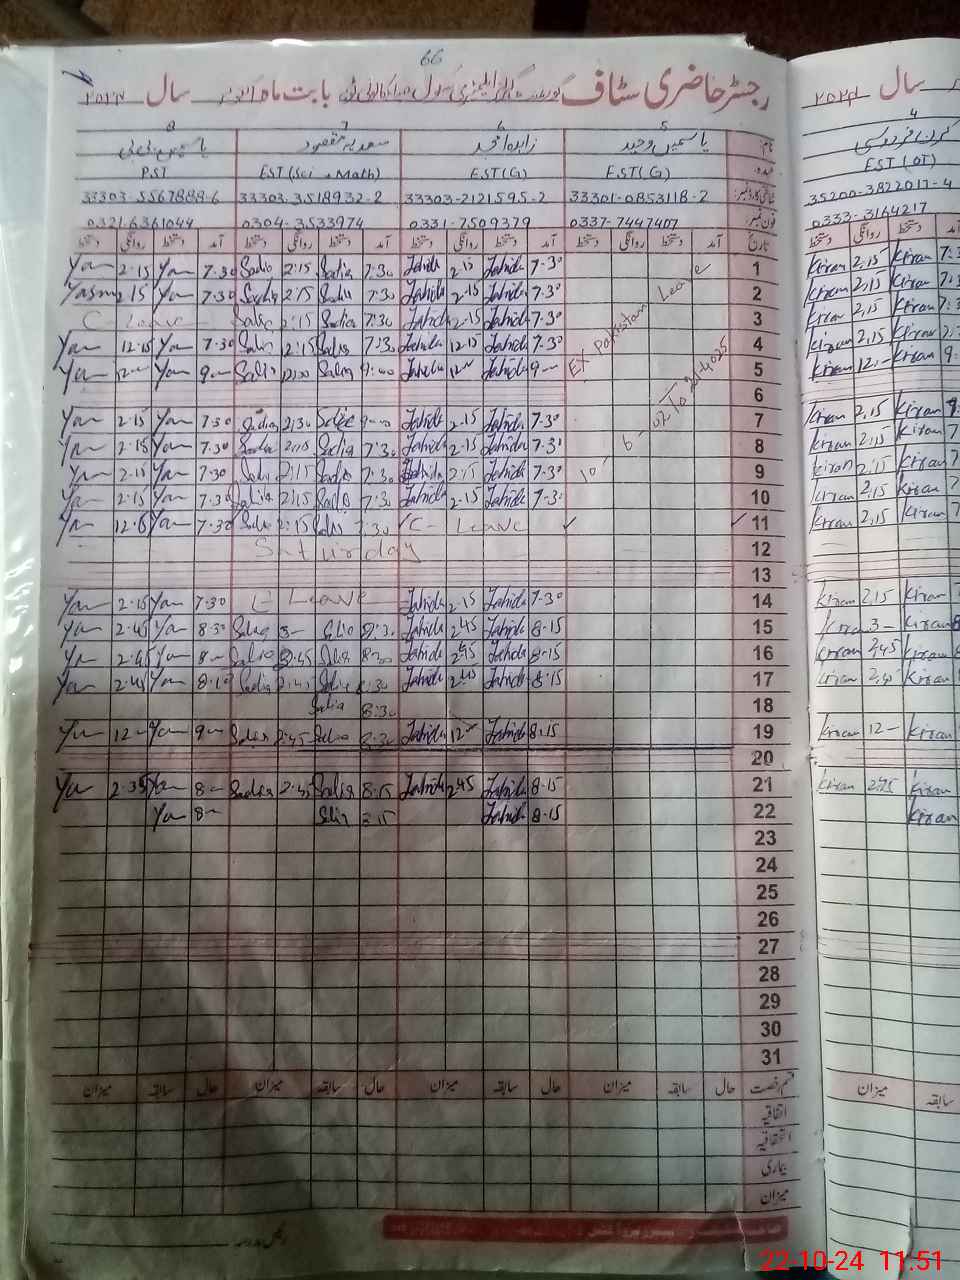 66
رجسٹر حاضری سٹاف گورنمنٹ گرلز ایلیمنٹری سکول بابت ماہ اکتوبر سال ۲۰۲۴
سال ۲۰۲۴
8 7 6 5 نام:
یاسمین بی بی سعدیہ مقصود زاہدہ امجد یاسمین وحید
PST EST (Sci + Math) EST(G) EST(G) عہدہ:
33303-5567888-6 33303-3518932-2 33303-2121595-2 33301-0853118-2 شناختی کارڈ نمبر:
0321-6361044 0304-3533974 0331-7509379 0337-7447407 فون نمبر:
دستخط روانگی دستخط آمد دستخط روانگی دستخط آمد دستخط روانگی دستخط آمد دستخط روانگی دستخط آمد تاریخ
Yan 2.15 Yan 7.30 Sadia 2:15 Sadia 7:30 Zahida 2.15 Zahida 7.30 1
Yasm 2.15 Yan 7.30 Sadia 2:15 Sadia 7:30 Zahida 2.15 Zahida 7.30 2
C - Leave - Sadia 2:15 Sadia 7:30 Zahida 2.15 Zahida 7.30 3
Yan 12.15 Yan 7.30 Sadia 2:15 Sadia 7:30 Zahida 12.15 Zahida 7.30 4
Yan 12 — Yan 9 — Sadia 12:00 Sadia 9:00 Zahida 12 — Zahida 9 — 5
EX Pakistan Leave
6
10-6-02 To 20-4-025
Yan 2.15 Yan 7.30 Sadia 2:30 Sadia 9:00 Zahida 2.15 Zahida 7.30 7
Yan 2.15 Yan 7.30 Sadia 2:15 Sadia 7:30 Zahida 2.15 Zahida 7.30 8
Yan 2.15 Yan 7.30 Sadia 2:15 Sadia 7:30 Zahida 2.15 Zahida 7.30 9
Yan 2.15 Yan 7.30 Sadia 2:15 Sadia 7:30 Zahida 2.15 Zahida 7.30 10
Yan Yan 7.30 Sadia 2:15 Sadia 7:30 C - Leave 11
Saturday 12
13
Yan 2.15 Yan 7.30 C - Leave Zahida 2.15 Zahida 7.30 14
Yan 2.45 Yan 8.30 Sadia 3 — Sadia 8:30 Zahida 2.45 Zahida 8.15 15
Yan 2.45 Yan 8 — Sadia 2:45 Sadia 8:30 Zahida 2.45 Zahida 8.15 16
Yan 2.45 Yan 8.10 Sadia 2:45 Sadia 8:30 Zahida 2.45 Zahida 8.15 17
Sadia 8:30 18
Yan 12 — Yan 9 — Sadia 2:45 Sadia 8:30 Zahida 12 — Zahida 8.15 19
20
Yan 2.35 Yan 8 — Sadia 2:45 Sadia 8:15 Zahida 2.45 Zahida 8.15 21
Yan 8 — Sadia 8:15 Zahida 8.15 22
23
24
25
26
27
28
29
30
31
میزان سابقہ حال میزان سابقہ حال میزان سابقہ حال میزان سابقہ حال قسم رخصت
اتفاقیہ
استحقاقیہ
بیماری
میزان
4
کرن فردوسی
EST (OT)
35200-3822017-4
0333-3164217
دستخط روانگی دستخط آمد
Kiran 2.15 Kiran
Kiran 2.15 Kiran
Kiran 2.15 Kiran
Kiran 2.15 Kiran
Kiran 12 — Kiran
Kiran 2.15 Kiran
Kiran 2.15 Kiran
Kiran 2.15 Kiran
Kiran 2.15 Kiran
Kiran 2.15 Kiran
Kiran 2.15 Kiran
Kiran 3 — Kiran
Kiran 2.45 Kiran
Kiran 2.45 Kiran
Kiran 12 — Kiran
Kiran 2.45 Kiran
Kiran
میزان سابقہ
22-10-24 11.51